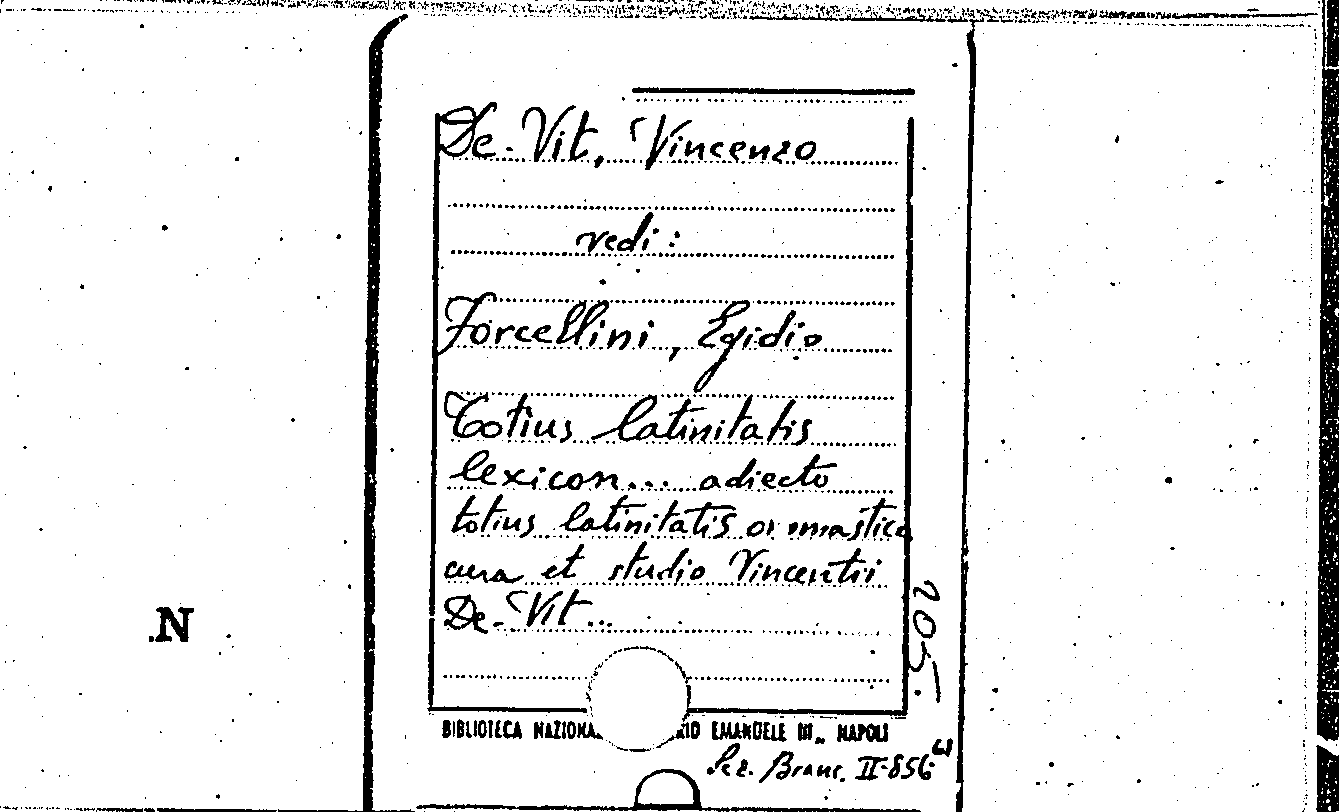 De-Vit, Vincenzo
vedi:
Forcellini, Egidio
Totius latinitatis
lexicon... adiecto
totius latinitatis onomastico
cura et studio Vincentii
De-Vit...
205.
N
BIBLIOTECA NAZIONA RIO EMANUELE III„ NAPOLI
Sez. Branc. II-856